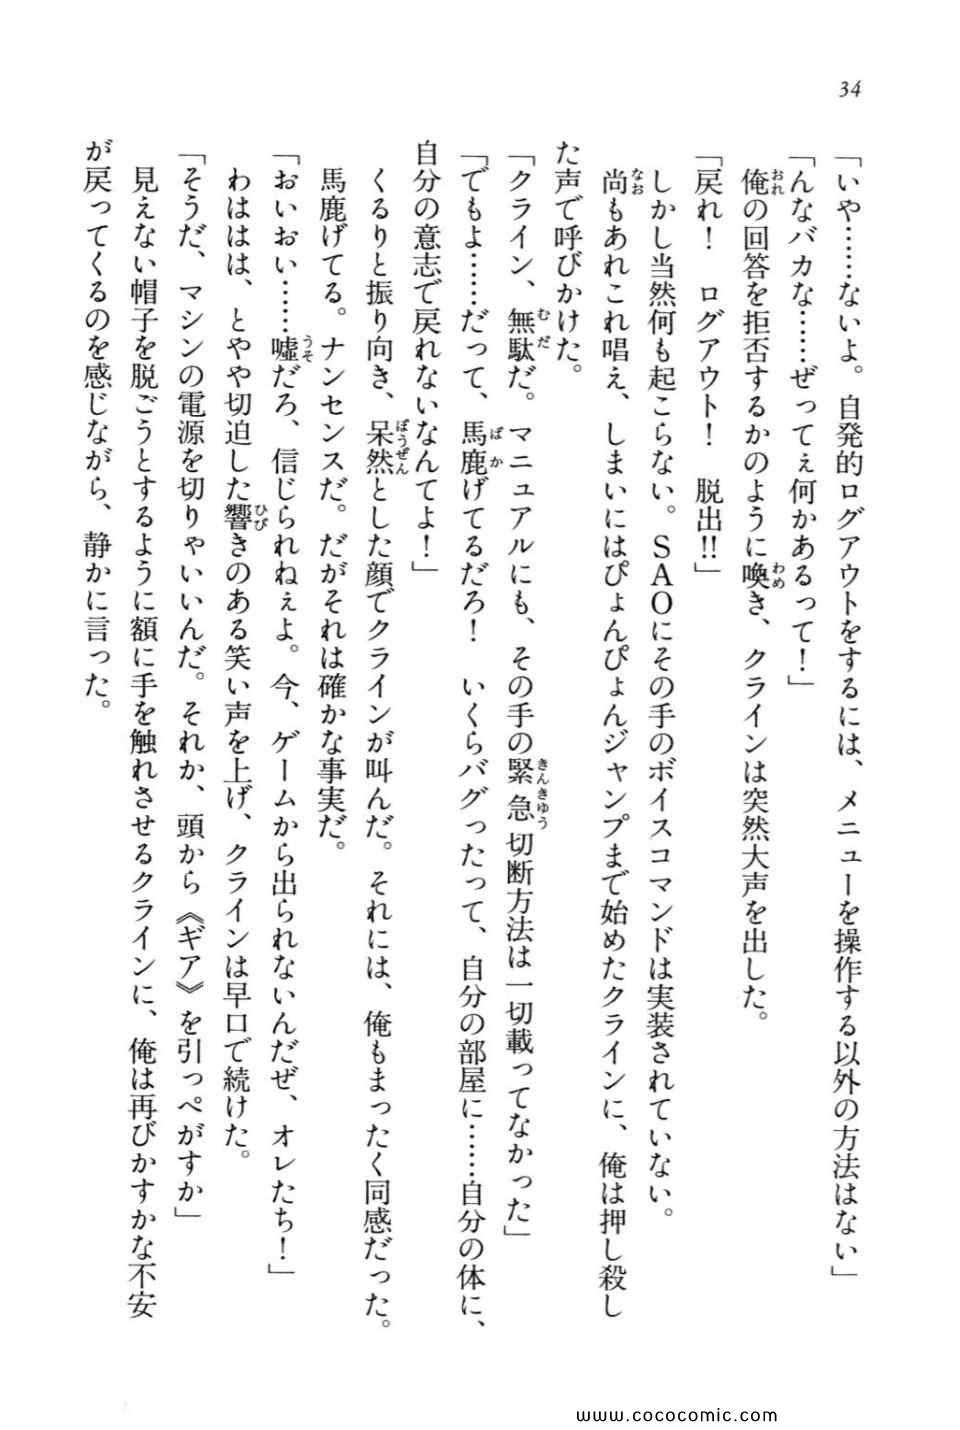 34
「いや……ないよ。自発的ログアウトをするには、メニューを操作する以外の方法はない」
「んなバカな……ぜってぇ何かあるって！」
俺の回答を拒否するかのように喚き、クラインは突然大声を出した。
「戻れ！　ログアウト！　脱出!!」
しかし当然何も起こらない。ＳＡＯにその手のボイスコマンドは実装されていない。
尚もあれこれ唱え、しまいにはぴょんぴょんジャンプまで始めたクラインに、俺は押し殺し
た声で呼びかけた。
「クライン、無駄だ。マニュアルにも、その手の緊急切断方法は一切載ってなかった」
「でもよ……だって、馬鹿げてるだろ！　いくらバグったって、自分の部屋に……自分の体に、
自分の意志で戻れないなんてよ！」
くるりと振り向き、呆然とした顔でクラインが叫んだ。それには、俺もまったく同感だった。
馬鹿げてる。ナンセンスだ。だがそれは確かな事実だ。
「おいおい……嘘だろ、信じられねぇよ。今、ゲームから出られないんだぜ、オレたち！」
わははは、とやや切迫した響きのある笑い声を上げ、クラインは早口で続けた。
「そうだ、マシンの電源を切りゃいいんだ。それか、頭から《ギア》を引っぺがすか」
見えない帽子を脱ごうとするように額に手を触れさせるクラインに、俺は再びかすかな不安
が戻ってくるのを感じながら、静かに言った。
www.cococomic.com